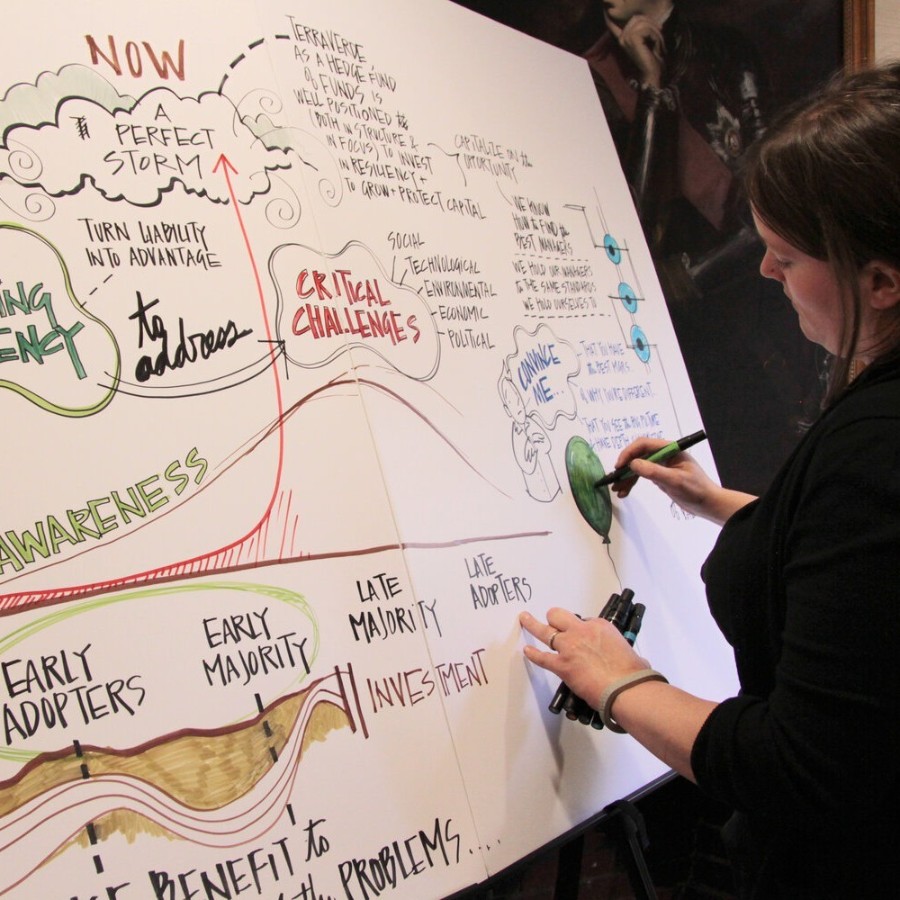 NOW
A
PERFECT
STORM
TERRAVERDE
AS A HEDGE FUND
OF FUNDS IS
WELL POSITIONED
(BOTH IN STRUCTURE &
IN FOCUS) TO INVEST
IN RESILIENCY +
TO GROW + PROTECT CAPITAL
CAPITALIZE ON the
OPPORTUNITY
WE KNOW
HOW to FIND the
BEST MANAGERS
WE HOLD OUR MANAGERS
to THE SAME STANDARDS
WE HOLD OURSELVES TO
TURN LIABILITY
INTO ADVANTAGE
ING
ENCY
to
address
CRITICAL
CHALLENGES
SOCIAL
TECHNOLOGICAL
ENVIRONMENTAL
ECONOMIC
POLITICAL
CONVINCE
ME...
THAT YOU MAKE
& WHY YOU'RE DIFFERENT.
THAT YOU SEE the BIG PICTURE
AWARENESS
EARLY
ADOPTERS
EARLY
MAJORITY
LATE
MAJORITY
LATE
ADOPTERS
INVESTMENT
BENEFIT to
PROBLEMS....